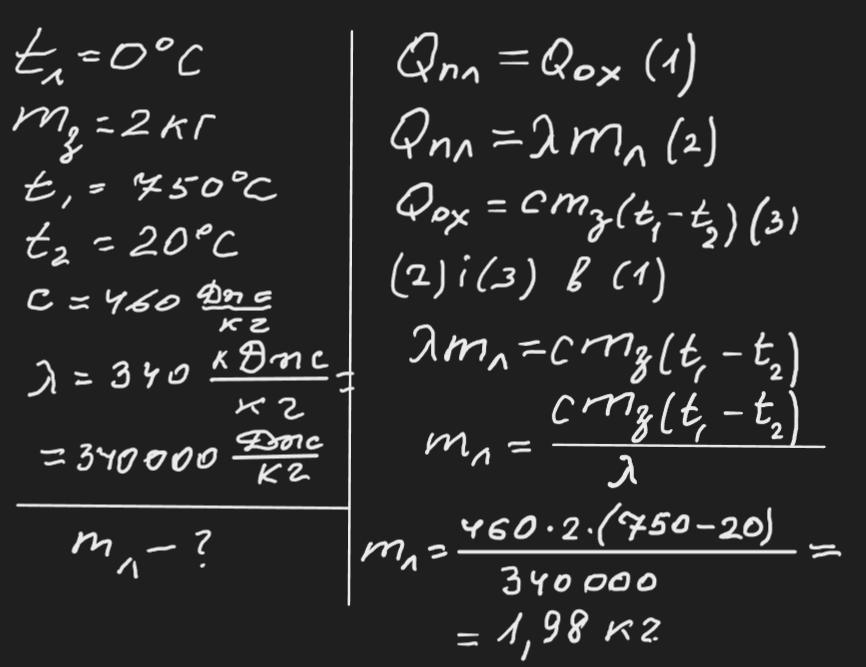 tл = 0°C
mз = 2 кг
t₁ = 750°C
t₂ = 20°C
c = 460 Дж/кг
λ = 340 кДж/кг =
= 340000 Дж/кг
mл - ?
Qпл = Qох (1)
Qпл = λmл (2)
Qох = cmз(t₁ - t₂) (3)
(2) і (3) в (1)
λmл = cmз(t₁ - t₂)
mл = cmз(t₁ - t₂)/λ
mл = 460·2·(750-20)/340000 =
= 1,98 кг